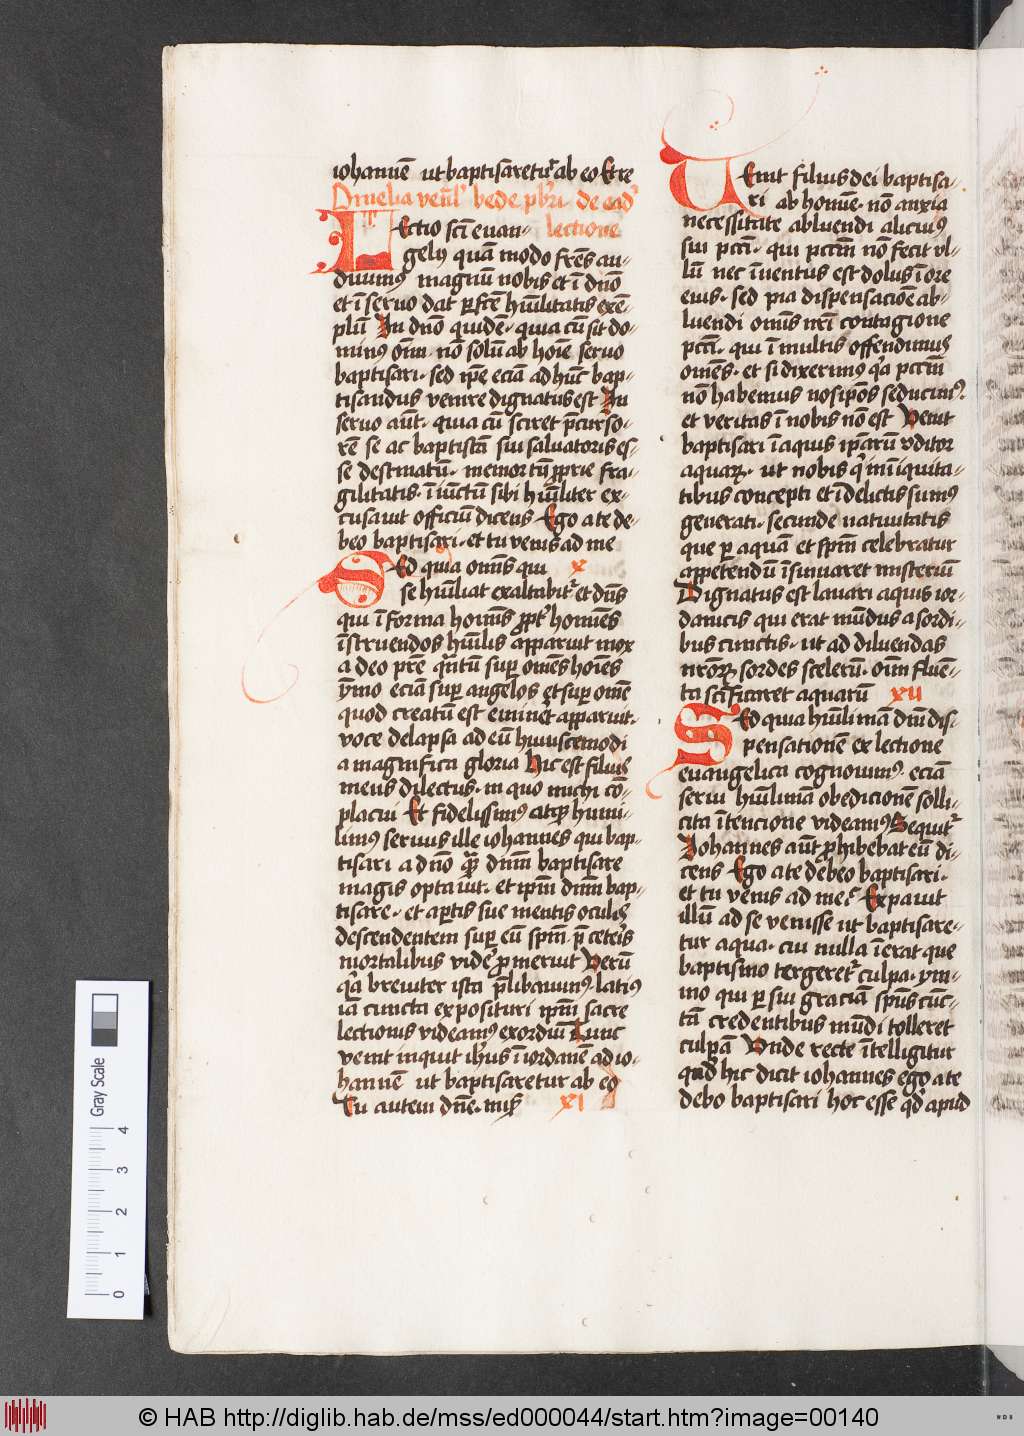 iohannē ut baptisaretur ab eo Et re
Omelia ven̄l' bede pb̄ri de eadē
lectione
LEctio sc̄i euan-
gelij quā modo fr̄es au-
diuimus magnū nobis et ī dn̄o
et ī seruo dat ꝑfc̄e hūilitatis exē-
plū In dn̄o quidē · quia cū sit do-
minus oīm · nō solū ab hoīe seruo
baptisari · sed ip̄e eciā ad hūc bap-
tisandus venire dignatus est In
seruo aūt · quia cū sciret p̄curso-
rē se ac baptistā sui saluatoris es-
se destinatū · memor tn̄ ꝓprie fra-
gilitatis · ī iūctū sibi hūiliter ex-
cusauit officiū dicens Ego a te de-
beo baptisari · et tu venis ad me
SEd quia om̄is qui x
se hūiliat exaltabitur et dn̄s
qui ī forma hoīnis ꝓpter homīes
īstruendos hūilis apparuit mox
a deo pr̄e quantū super om̄es hoīes
ymo eciā super angelos et super om̄e
quod creatū est emineret apparuit ·
voce delapsa ad eū huiuscemodi
a magnifica gloria Hic est filius
meus dilectus · in quo michi cō-
placui Et fidelissimus atque humi-
limus seruus ille iohannes qui bap-
tisari a dn̄o quam dn̄m baptisare
magis optauit · et ip̄m dn̄m bap-
tisare · et apertis sue mentis oculis
descendentem super eū sp̄m p̄ ceteris
mortalibus videre ꝓmeruit Verū
quia breuiter ista p̄libauimus · latius
iā cuncta exposituri ip̄m sacre
lectionis videamus exordiū Tunc
venit inquit ih̄us ī iordanē ad io-
hannē ut baptisaretur ab eo
Tu autem dn̄e · mis̄ XI
VEnit filius dei baptisa-
ri ab homīe · nō anxia
necessitate abluendi alicuius
sui pccī · qui pccm̄ nō fecit vl-
lū nec īuentus est dolus ī ore
eius · sed pia dispensacōe ab-
luendi om̄is nr̄i contagione
pccī · qui ī multis offendimus
om̄es · et si dixerimus quia pccm̄
nō habemus nosip̄os seducimus ·
et veritas ī nobis nō est Venit
baptisari ī aquis ip̄arū ꝯditor
aquarꝝ · ut nobis qui ī iniquita-
tibus concepti et ī delictis sumus
generati · secunde natiuitatis
que per aquā et sp̄m celebratur
appetendū īsinuaret misteriū
Dignatus est lauari aquis ior-
danicis qui erat mūdus a sordi-
bus cunctis · ut ad diluendas
nr̄orꝝ sordes scelerū · oīm fluē-
ta sc̄ificaret aquarū XII
SEd quia hūilimā dn̄i dis-
pensationem ex lectione
euangelica cognouimus · eciā
serui hūilimā obedicionē solli-
cita ītencione videamus Sequitur
Iohannes aūt ꝓhibebat eū di-
cens Ego a te debeo baptisari ·
et tu venis ad me Expauit
illū ad se venisse ut baptisare-
tur aqua · cui nulla īerat que
baptismo tergeretur culpa · ym-
mo qui per sui graciā sp̄us cūc-
tā credentibus mūdi tolleret
culpā Vnde recte ītelligitur
quod hic dicit iohannes ego a te
debo baptisari hoc esse quod apud
© HAB http://diglib.hab.de/mss/ed000044/start.htm?image=00140
Gray Scale
0 1 2 3 4